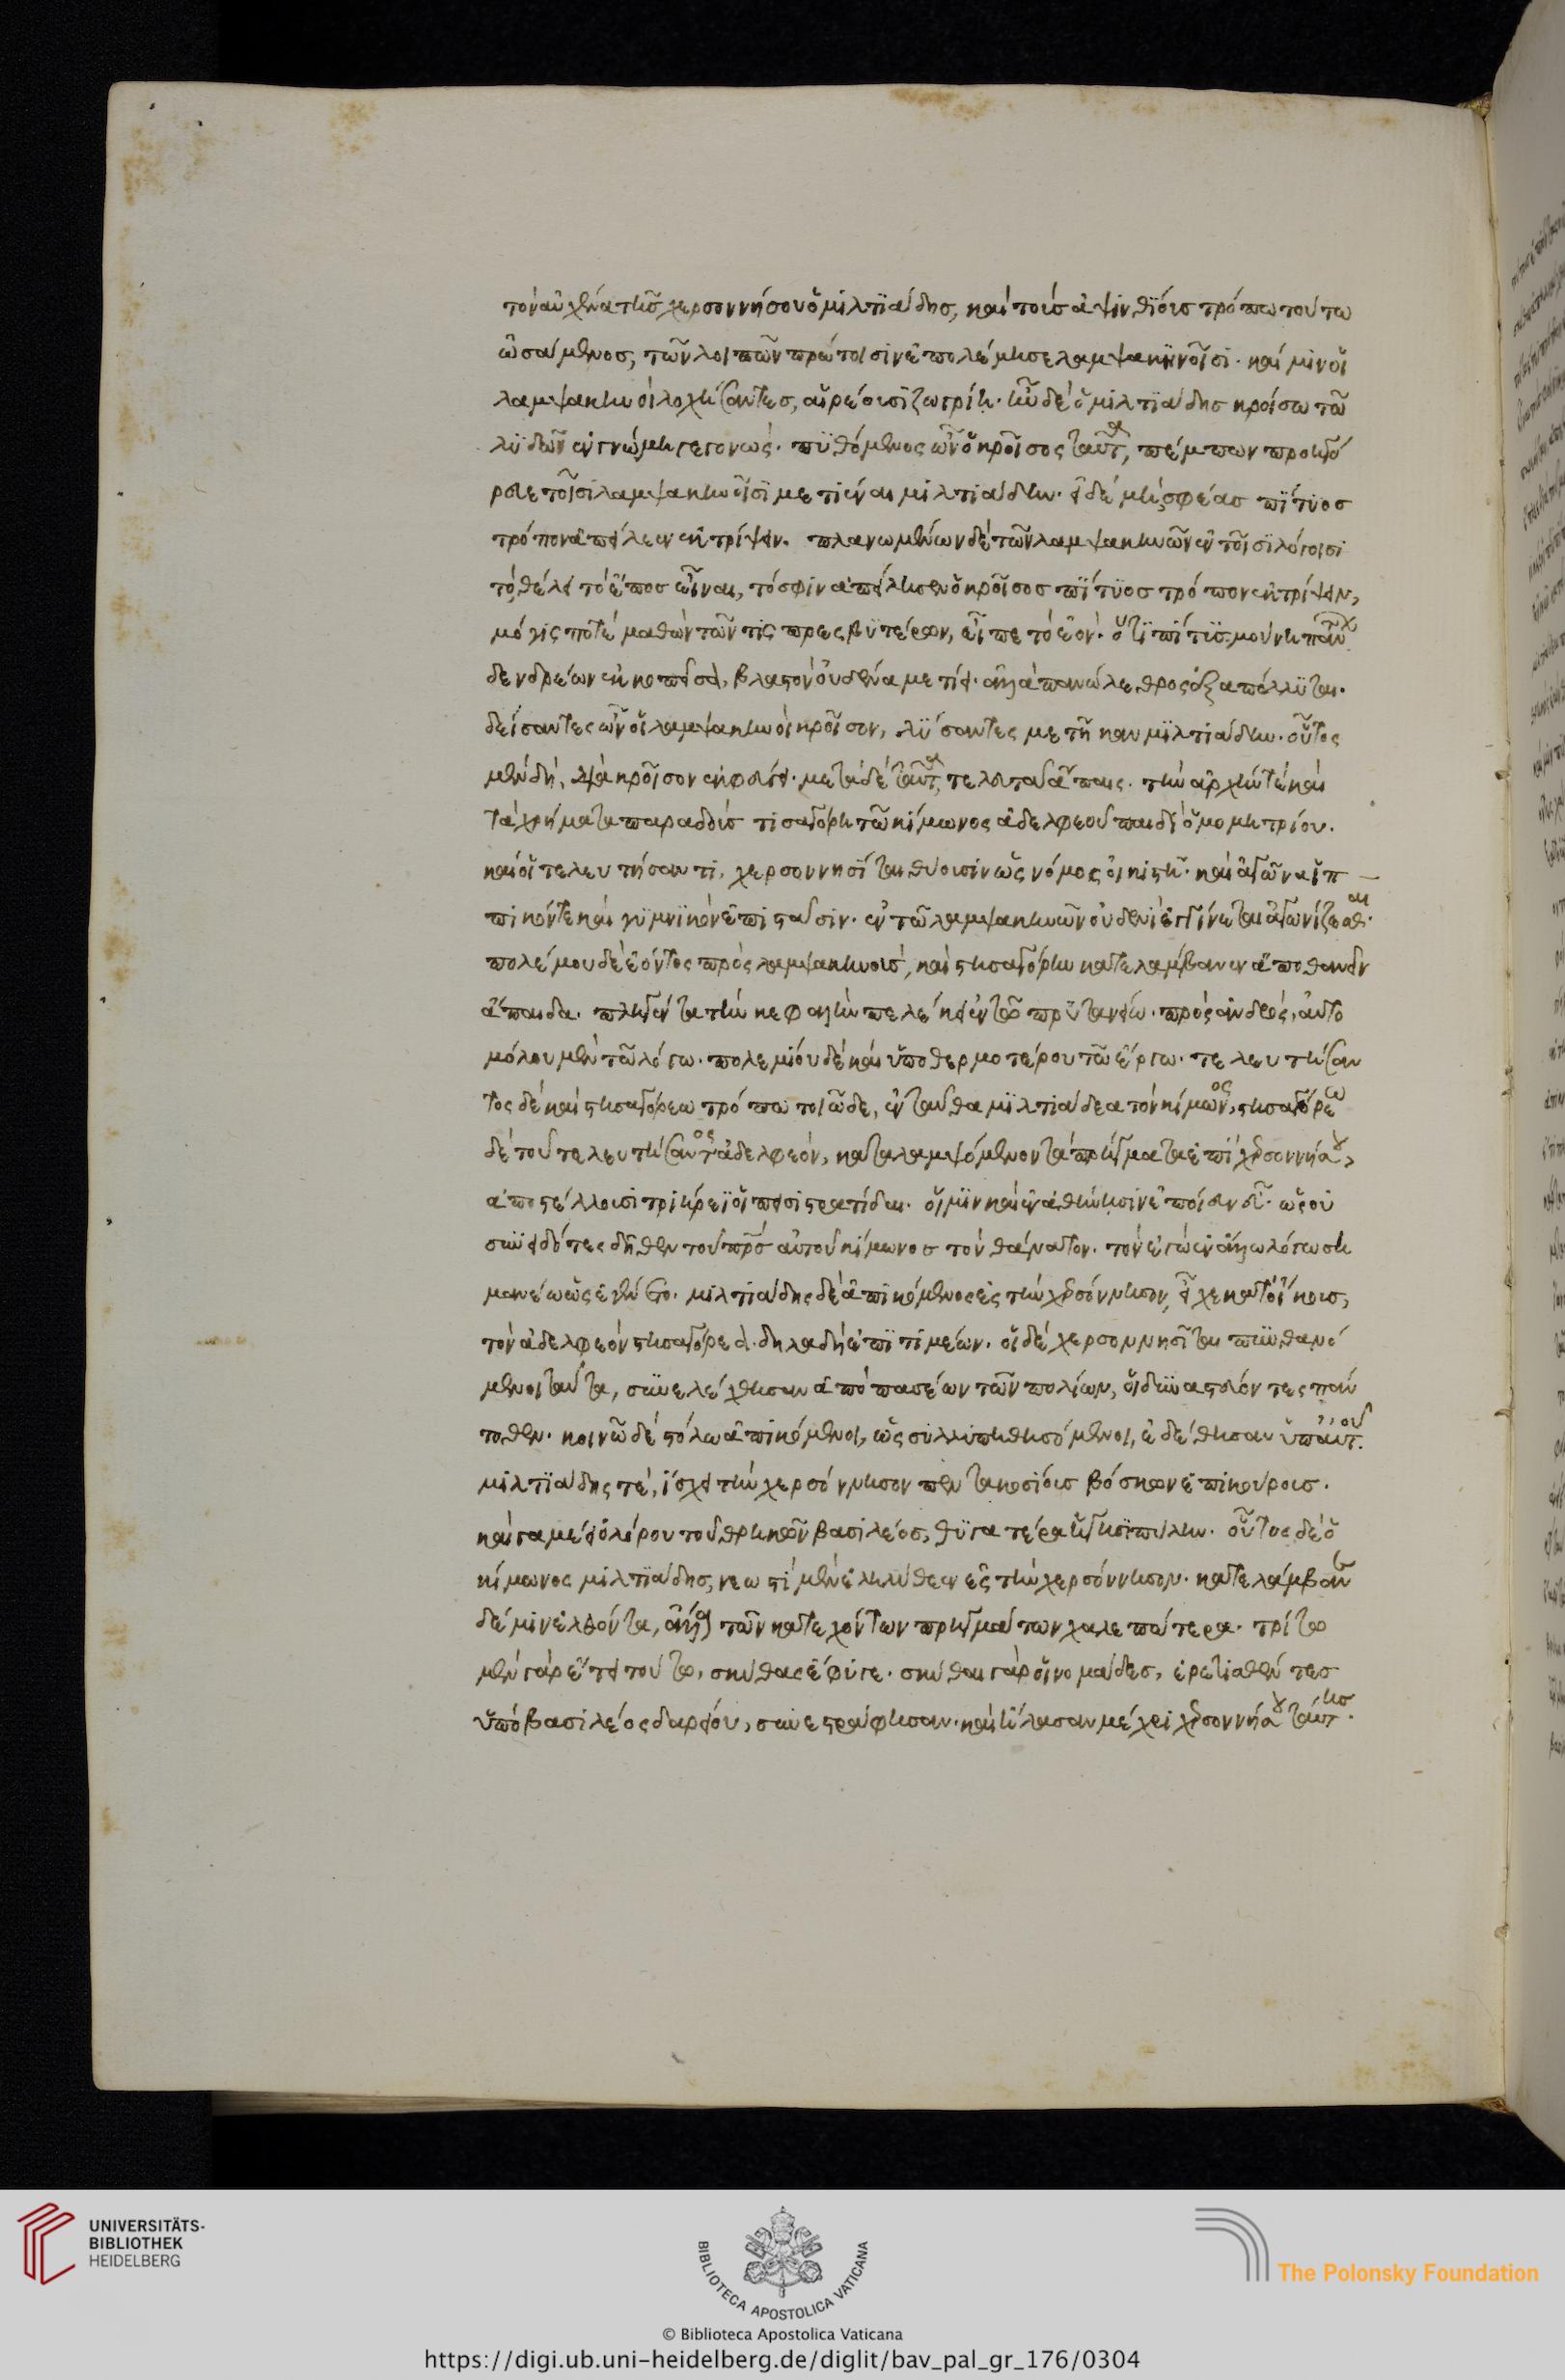 τὸν αὐχένα τῆς χερσοννήσου ὁ μιλτιάδης, καὶ τοὺς ἀψινθίους τρόπω τούτω
ὠσάμενος, τῶν λοιπῶν πρώτοισιν ἐπολέμησε λαμψακηνοῖσι. καί μιν οἱ
λαμψακηνοὶ λοχήσαντες, αἱρέουσι ζωγρίη. ἦν δὲ ὁ μιλτιάδης κροίσω τῶ
λυδῶν ἐν γνώμη γεγονώς. πυθόμενος ὦν ὁ κροῖσος ταῦτα, πέμπων προηγό
ρευε τοῖσι λαμψακηνοῖσι μετιέναι μιλτιάδην. εἰ δὲ μὴ σφέας πίτυος
τρόπον ἀπείλεεν ἐκτρίψειν. πλανωμένων δὲ τῶν λαμψακηνῶν ἐν τοῖσι λόγοισι
τὸ θέλει τὸ ἔπος εἶναι, τό σφιν ἀπείλησεν ὁ κροῖσος πίτυος τρόπον ἐκτρίψειν,
μόγις ποτὲ μαθὼν τῶν τις πρεσβυτέρων, εἶπε τὸ ἐόν. ὅτι πίτυς μούνη πάντων
δενδρέων ἐκκοπεῖσα, βλαστὸν οὐδένα μετίει. ἀλλὰ πανώλεθρος ἐξαπόλλυται.
δείσαντες ὦν οἱ λαμψακηνοὶ κροῖσον, λύσαντες μετῆκαν μιλτιάδην. οὗτος
μὲν δὴ, διὰ κροῖσον ἐκφεύγει. μετὰ δὲ ταῦτα, τελευτᾶ ἄπαις. τὴν ἀρχήν τε καὶ
τὰ χρήματα παραδοὺς τισαγόρη τῶ κίμωνος ἀδελφεοῦ παιδὶ ὁμομητρίου.
καί οἱ τελευτήσαντι, χερσοννησῖται θύουσιν ὡς νόμος οἰκιστῆ. καὶ ἀγῶνα ἱπ
πικόν τε καὶ γυμνικὸν ἐπιστᾶσιν. ἐν τῶ λαμψακηνῶν οὐδενὶ ἐγγίνεται ἀγωνίζεσθαι.
πολέμου δὲ ἐόντος πρὸς λαμψακηνοὺς, καὶ στησαγόρην κατελάμβανεν ἀποθανεῖν
ἄπαιδα. πληγέντα τὴν κεφαλὴν πελέκει ἐν τῶ πρυτανείω. πρὸς ἀνδρὸς, αὐτο
μόλου μὲν τῶ λόγω. πολεμίου δὲ καὶ ὑποθερμοτέρου τῶ ἔργω. τελευτήσαν
τος δὲ καὶ στησαγόρεω τρόπω τοιῶδε, ἐνταῦθα μιλτιάδεα τὸν κίμωνος, στησαγόρεω
δὲ τοῦ τελευτήσαντος ἀδελφεὸν, καταλαμψόμενον τὰ πρήγματα ἐπὶ χερσοννήσου,
ἀποστέλλουσι τριήρεϊ οἱ πεισιστρατίδαι. οἵ μιν καὶ ἐν ἀθήνησιν ἐποίευν εὖ. ὡς οὐ
συνειδότες δῆθεν τοῦ πρς αὐτοῦ κίμωνος τὸν θάνατον. τὸν ἐγὼ ἐν ἄλλω λόγω ση
μανέω ὡς ἐγένετο. μιλτιάδης δὲ ἀπικόμενος ἐς τὴν χερσόνησον, εἶχε κατ' οἴκους,
τὸν ἀδελφεὸν στησαγόρεα. δηλαδὴ ἐπιτιμέων. οἱ δὲ χερσοννησῖται πυνθανό
μενοι ταῦτα, συνελέχθησαν ἀπὸ πασέων τῶν πολίων, οἱ δυναστεύοντες πάν
τοθεν. κοινῶ δὲ στόλω ἀπικόμενοι, ὡς συλλυπηθησόμενοι, ἐδέθησαν ὑπ' αὐτοῦ.
μιλτιάδης τὲ, ἴσχει τὴν χερσόννησον πεντακοσίους βόσκων ἐπικούρους.
καὶ γαμέει ὀλόρου τοῦ θρηκῶν βασιλέος, θυγατέρα ἡγησιπύλην. οὗτος δὲ ὁ
κίμωνος μιλτιάδης, νεωστὶ μὲν ἐληλύθεεν ἐς τὴν χερσόννησον. κατελάμβανε
δέ μιν ἐλθόντα, ἄλλα τῶν κατεχόντων πρηγμάτων χαλεπώτερα. τρίτω
μὲν γὰρ ἔτει τούτω, σκύθας ἔφυγε. σκύθαι γὰρ οἱ νομάδες, ἐρετισθέντες
ὑπὸ βασιλέος δαρείου, συνεστράφησαν. καὶ ἤλασαν μέχρι χερσοννήσου ταύτης.
UNIVERSITÄTS-
BIBLIOTHEK
HEIDELBERG
BIBLIOTECA APOSTOLICA VATICANA
The Polonsky Foundation
© Biblioteca Apostolica Vaticana
https://digi.ub.uni-heidelberg.de/diglit/bav_pal_gr_176/0304